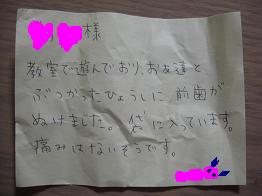 様
教室で遊んでおり、お友達と
ぶつかったひょうしに 前歯が
ぬけました。袋に入っています。
痛みはないそうです。